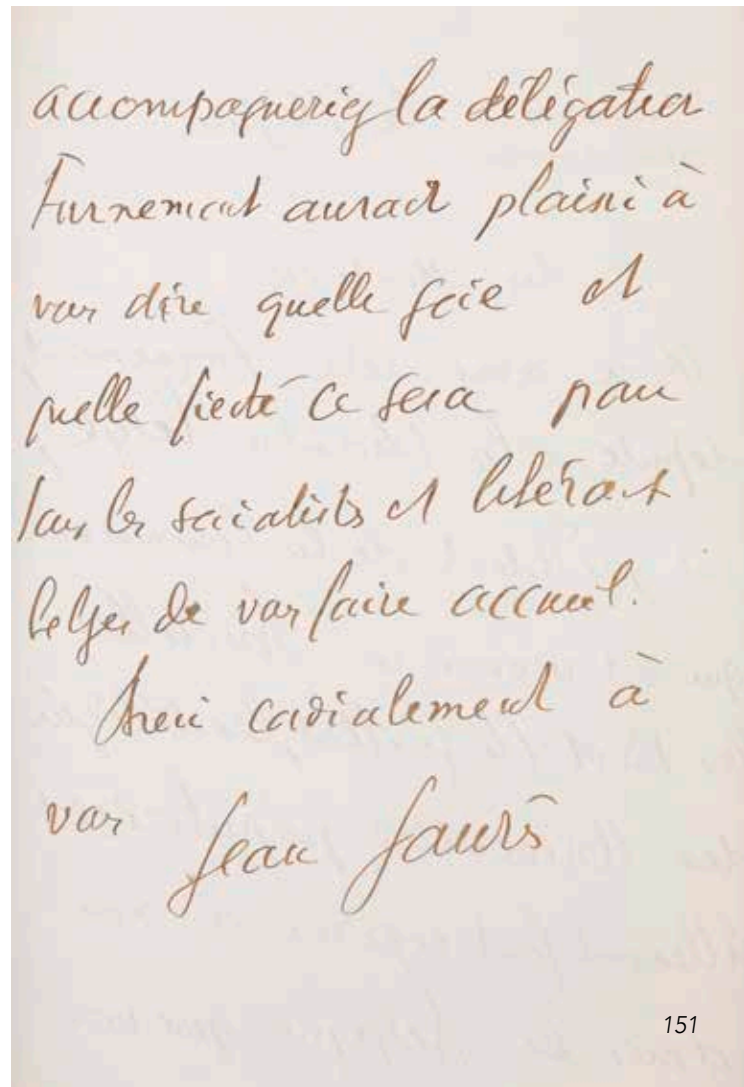 accompagneriez la délégation
Furnemont aurait plaisir à
vous dire quelle joie et
quelle fierté ce sera pour
tous les socialistes et libéraux
belges de vous faire accueil.
bien cordialement à
vous Jean Jaurès
151